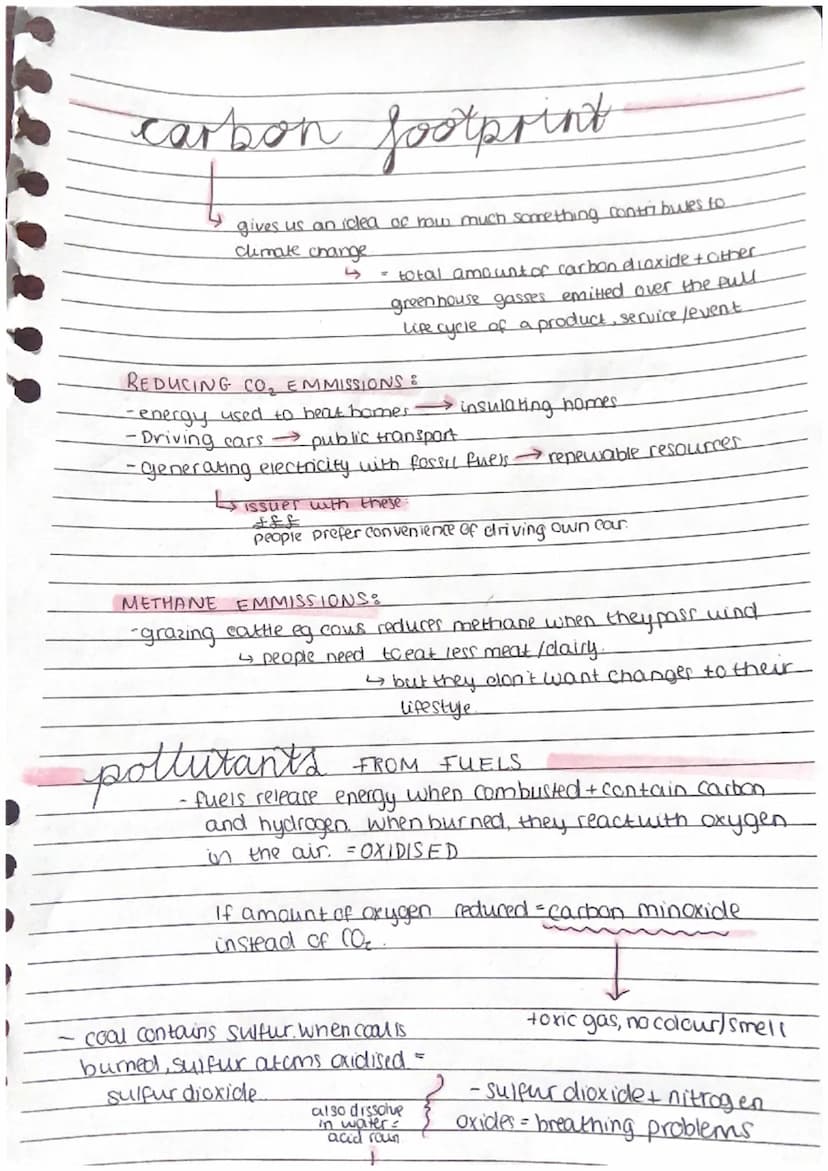 carbon footprint
↳ gives us an idea of how much something contributes to
climate change
↳ = total amount of carbon dioxide + other
greenhouse gasses emitted over the full
life cycle of a product, service/event
REDUCING CO₂ EMMISSIONS:
- energy used to heat homes → insulating homes
- Driving cars → public transport
- generating electricity with fossil fuels → renewable resources
↳ issues with these:
£££
people prefer convenience of driving own car.
METHANE EMMISSIONS:
- grazing cattle eg cows reduces methane when they pass wind
↳ people need to eat less meat/dairy.
↳ but they don't want changes to their
lifestyle.
pollutants FROM FUELS
- fuels release energy when combusted + contain carbon
and hydrogen. when burned, they react with oxygen
in the air. = OXIDISED
If amount of oxygen reduced = carbon minoxide
instead of CO₂.
↓
toxic gas, no colour/smell
- coal contains sulfur. when coal is
burned, sulfur atoms oxidised =
sulfur dioxide
- sulfur dioxide + nitrogen
oxides = breathing problems
also dissolve
in water =
acid rain